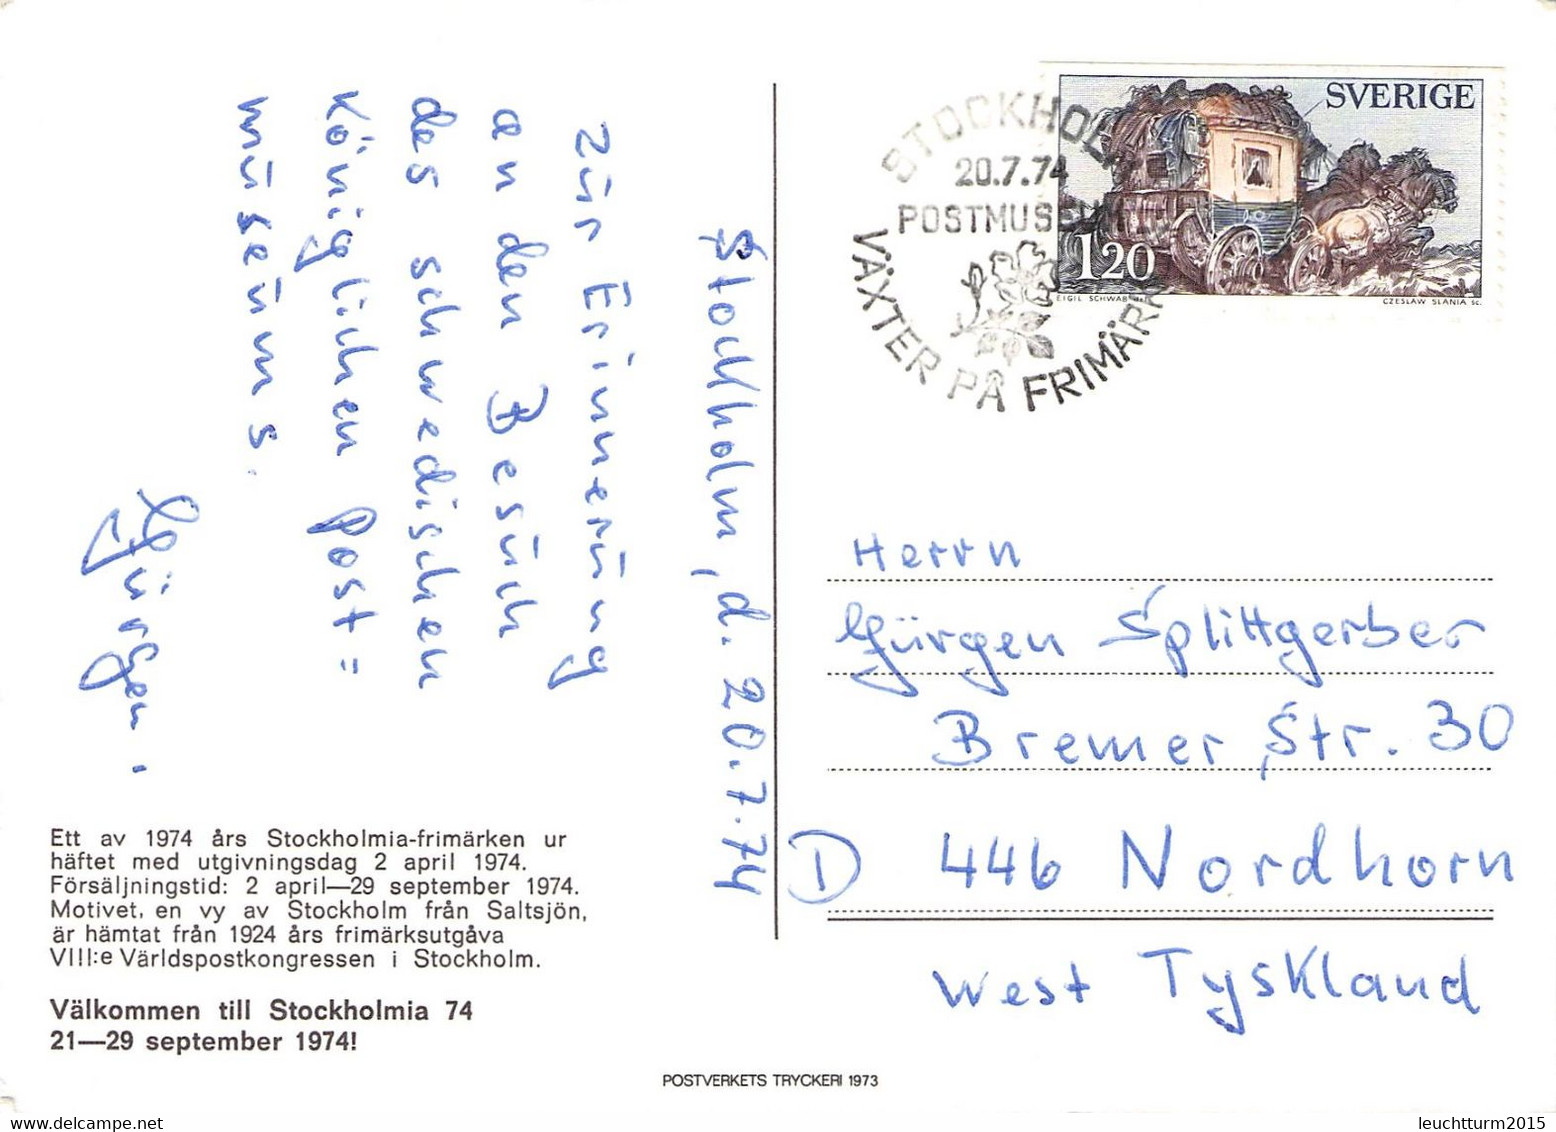 Stockholm, d. 20.7.74
Zur Erinnerung
an den Besuch
des schwedischen
Königlichen Post=
museums.
Jürgen.
Ett av 1974 års Stockholmia-frimärken ur
häftet med utgivningsdag 2 april 1974.
Försäljningstid: 2 april—29 september 1974.
Motivet, en vy av Stockholm från Saltsjön,
är hämtat från 1924 års frimärksutgåva
VIII:e Världspostkongressen i Stockholm.
Välkommen till Stockholmia 74
21—29 september 1974!
POSTVERKETS TRYCKERI 1973
STOCKHOL
20.7.74
POSTMUSEU
VÄXTER PÅ FRIMÄRK
SVERIGE
120
EIGIL SCHWAB
CZESLAW SLANIA SC.
Herrn
Jürgen Splittgerber
Bremer Str. 30
D 446 Nordhorn
West Tyskland
leuchtturm2015